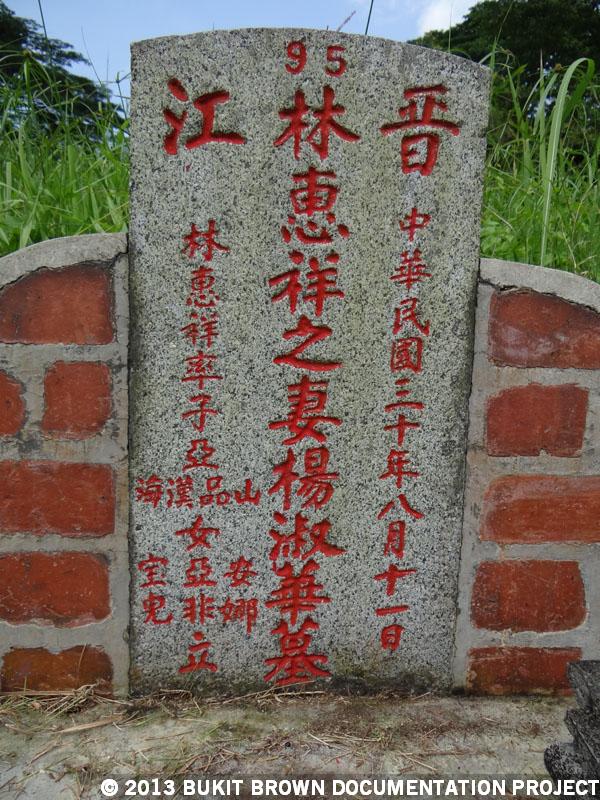 95
晋江
中華民國三十年八月十一日
林惠祥之妻楊淑華墓
林惠祥率子亞
山品漢海
女亞非
安娜
宝兒
立
© 2013 BUKIT BROWN DOCUMENTATION PROJECT